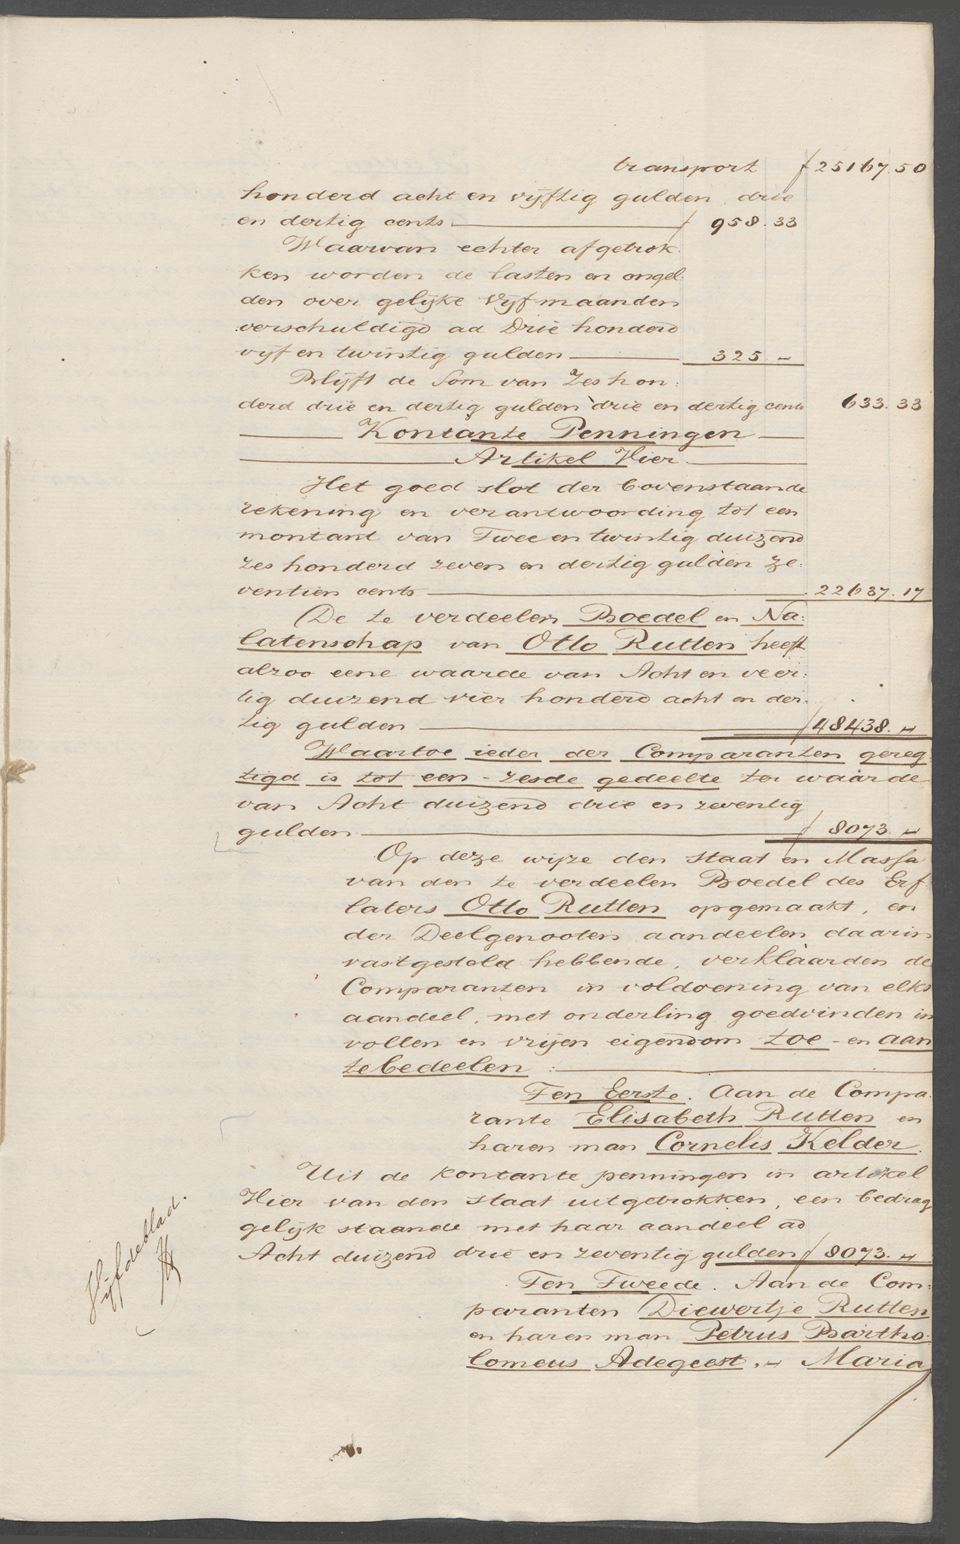 transport ƒ 25167.50
honderd acht en vijftig gulden, drie
en dertig cents ƒ 958.33
Waarvan echter afgetrok
ken worden de lasten en ongel
den over gelijke Vijf maanden
verschuldigd ad Drie honderd
vijf en twintig gulden 325.„
Blijft de Som van Zes hon:
derd drie en dertig gulden drie en dertig cents 633.33
Kontante Penningen
Artikel Vier
Het goed slot der bovenstaande
rekening en verantwoording tot een
montant van Twee en twintig duizend
zes honderd zeven en dertig gulden ze:
ventien cents 22637.17
De te verdeelen Boedel en Na:
latenschap van Otto Rutten heeft
alzoo eene waarde van Acht en veer:
tig duizend vier honderd acht en der:
tig gulden ƒ 48438.„
Waartoe ieder der Comparanten gereg
tigd is tot een-zesde gedeelte ter waarde
van Acht duizend drie en zeventig
gulden ƒ 8073.„
Op deze wijze den staat en Massa
van den te verdeelen Boedel des Erf
laters Otto Rutten opgemaakt, en
der Deelgenooten aandeelen daarin
vastgesteld hebbende, verklaarden de
Comparanten in voldoening van elks
aandeel, met onderling goedvinden in
vollen en vrijen eigendom toe- en aan
tebedeelen:
Ten Eerste. Aan de Compa:
rante Elisabeth Rutten en
haren man Cornelis Kelder.
Uit de kontante penningen in artikel
Vier van den staat uitgetrokken, een bedrag
gelijk staande met haar aandeel ad
Acht duizend drie en zeventig gulden ƒ 8073.„
Vijfdeblad.
Ten Tweede. Aan de Com:
paranten Diewertje Rutten
en haren man Petrus Bartho:
lomeus Adegeest, „ Maria